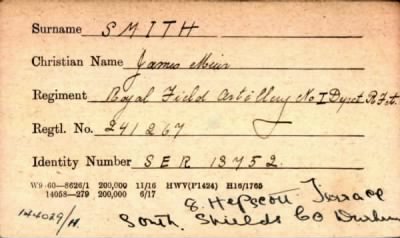 Surname SMITH
Christian Name James Muir
Regiment Royal Field Artillery No I Depot R.F.A.
Regtl. No. 241267
Identity Number SER 13752.
W9.60—8626/1 200,000 11/16 HWV(F1424) H16/1765
14058—279 200,000 6/17
8. Hepscott Terrace
144029/H. South Shields Co Durham